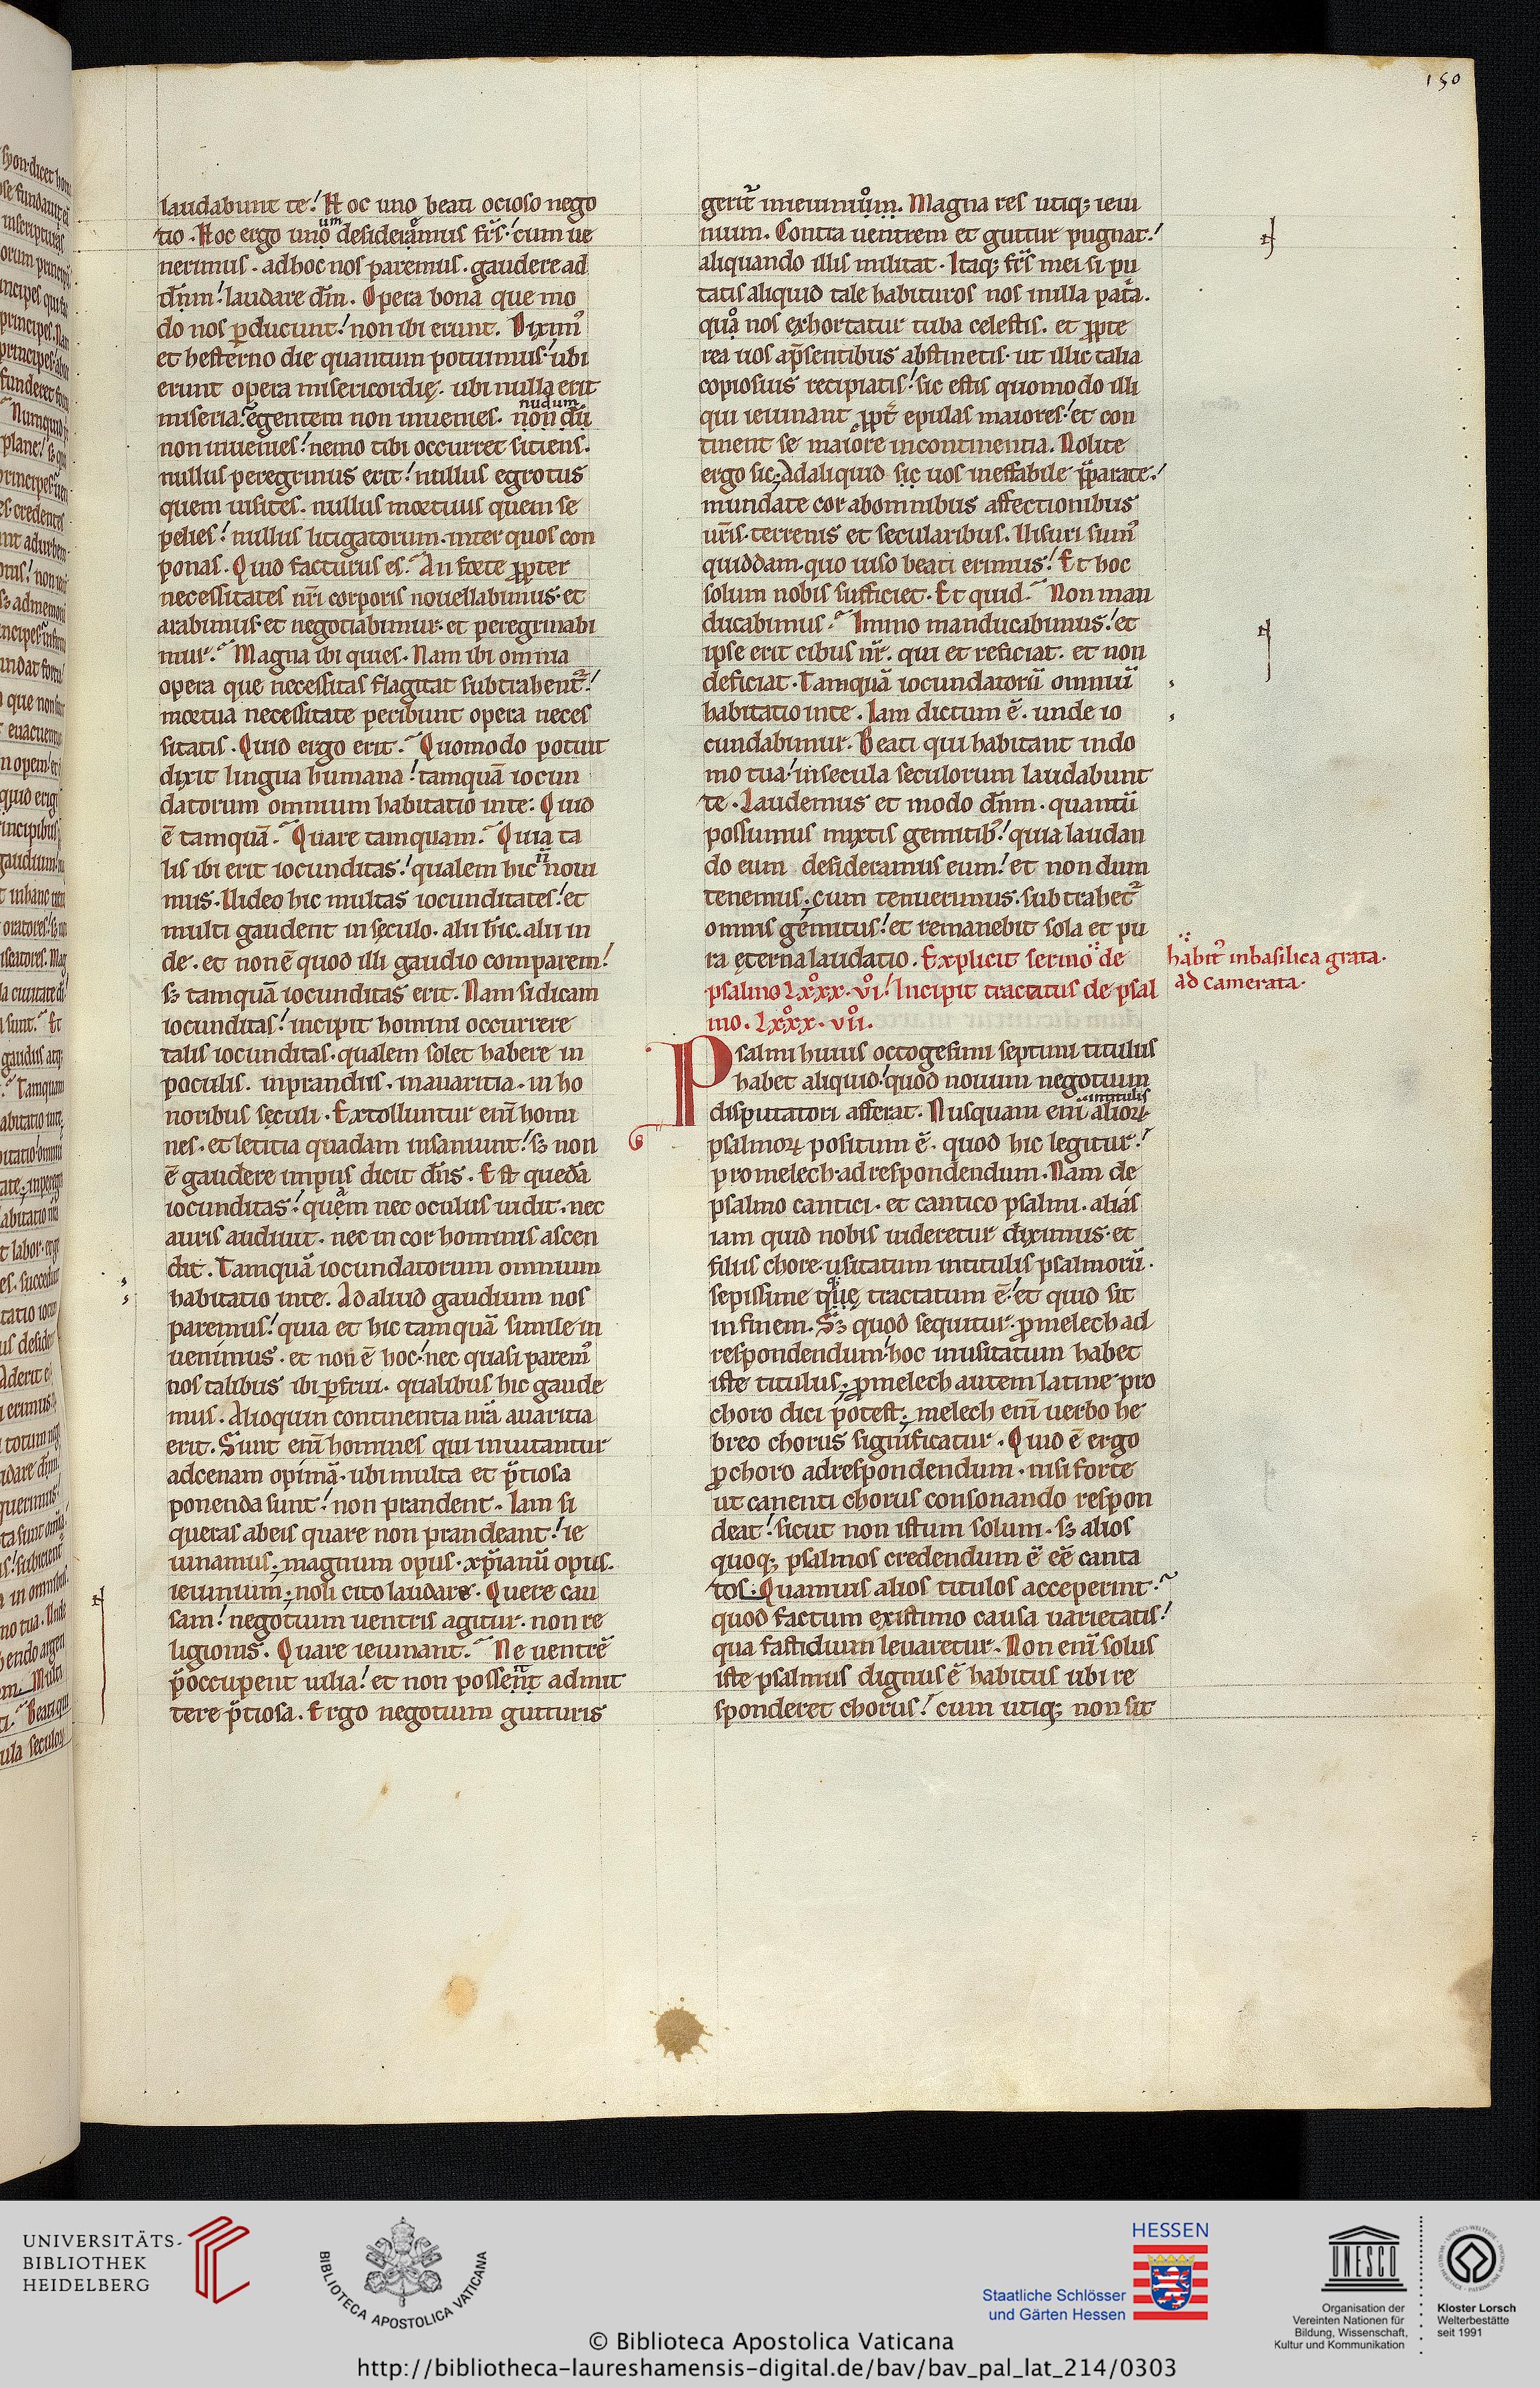 150
laudabunt te! Hoc uno beati ocioso nego
tio. Hoc ergo uno desideramus frs. cum ue
um
nerimus. adhoc nos paremus. gaudere ad
dnm! laudare dm. Opera bona que mo
do nos perducunt! non ibi erunt. Dixim᾽
et hesterno die quantum potuimus. ubi
erunt opera misericordię. ubi nulla erit
miseria. egentem non inuenies. non dū
nudum
non inuenies! nemo tibi occurret sitiens.
nullus peregrinus erit! nullus egrotus
quem uisites. nullus mortuus quem se
pelies! nullus litigatorum. inter quos con
ponas. Quid facturus es. An forte ꝓpter
necessitates nri corporis nouellabimus. et
arabimus. et negotiabimur. et peregrinabi
mur. Magna ibi quies. Nam ibi omnia
opera que necessitas flagitat subtrahent᾽!
mortua necessitate peribunt opera neces
sitatis. Quid ergo erit. Quomodo potuit
dixit lingua humana! tamquā iocun
datorum omnium habitatio inte: Quid
ē tamquā. Quare tamquam. Quia ta
lis ibi erit iocunditas! qualem hic n̄ noui
mus. Uideo hic multas iocunditates! et
multi gaudent in sęculo. alii hic. alii in
de. et non ē quod illi gaudio comparem!
sꝫ tamquā iocunditas erit. Nam si dicam
iocunditas! incipit homini occurrere
talis iocunditas. qualem solet habere in
poculis. inprandiis. inauaritia. in ho
noribus sęculi. Extolluntur eni homi
nes. et letitia quadam insaniunt! sꝫ non
ē gaudere impiis dicit dns. Est quedā
iocunditas! quam nec oculus uidit. nec
auris audiuit. nec in cor hominis ascen
dit. Tamquā iocundatorum omnium
habitatio inte. Ad aliud gaudium nos
paremus! quia et hic tamquā simile in
uenimus. et non ē hoc! nec quasi parem᾽
nos talibus ibi ꝑfrui. qualibus hic gaude
mus. Alioquin continentia nrā auaritia
erit. Sunt eni homines qui inuitantur
adcenam opimā. ubi multa et p̄tiosa
ponenda sunt! non prandent. Iam si
queras abeis quare non prandeant! ie
iunamus; magnum opus. xp̄ianū opus.
ieiunium; noli cito laudare. Quere cau
sam! negotium uentris agitur. non re
ligionis. Quare ieiunant. Ne uentrē
p̄occupent uilia! et non possent admit
tere p̄tiosa. Ergo negotium gutturis
gerit᾽ inieiunium. Magna res utiqꝫ ieiu
nium. Contra uentrem et guttur pugnat!
aliquando illis militat. Itaqꝫ frs mei si pu
tatis aliquid tale habituros nos inilla patā.
quā nos exhortatur tuba celestis. et ꝓpte
rea uos ap̄sentibus abstinetis. ut illic talia
copiosius recipiatis! sic estis quomodo illi
qui ieiunant ꝓpt̄ epulas maiores! et con
tinent se maiore incontinentia. Nolite
ergo sic; Adaliquid sic uos ineffabile p̄parate!
mundate cor abomnibus affectionibus
uris. terrenis et secularibus. Uisuri sum᾽
quiddam. quo uiso beati erimus! Et hoc
solum nobis sufficiet. Et quid. Non man
ducabimus. Immo manducabimus! et
ipse erit cibus nr. qui et reficiat. et non
deficiat. Tamquā iocundatorū omniū
habitatio inte. Iam dictum ē. unde io
cundabimur. Beati qui habitant indo
mo tua! insecula seculorum laudabunt
te. Laudemus et modo dnm. quantū
possumus mixtis gemitib᾽! quia laudan
do eum desideramus eum! et non dum
tenemus; cum tenuerimus. subtrahet᾽
omnis gemitus! et remanebit sola et pu
ra ęterna laudatio. Explicit sermo de
psalmo Lxxx. vi! Incipit tractatus de psal
mo. Lxxx. vii.
habit᾽ inbasilica grata.
ad camerata.
Psalmi huius octogesimi septimi titulus
habet aliquid! quod nouum negotium
disputatori afferat. Nusquam eni alioꝝ
intitulis
psalmoꝝ positum ē. quod hic legitur!
promelech. adrespondendum. Nam de
psalmo cantici. et cantico psalmi. alias
iam quid nobis uideretur diximus. et
filiis chore. usitatum intitulis psalmorū.
sepissime tractatum ē! et quid sit
infinem. Sꝫ quod sequitur. ꝓmelech ad
respondendum. hoc inusitatum habet
iste titulus; ꝓmelech autem latine pro
choro dici potest; melech eni uerbo he
breo chorus significatur. Quid ē ergo
ꝓchoro adrespondendum. nisi forte
ut canenti chorus consonando respon
deat! sicut non istum solum. sꝫ alios
quoqꝫ psalmos credendum ē eē canta
tos; Quamuis alios titulos acceperint.
quod factum existimo causa uarietatis!
qua fastidium leuaretur. Non eni solus
iste psalmus dignus ē habitus ubi re
sponderet chorus! cum utiqꝫ non sit
UNIVERSITÄTS-
BIBLIOTHEK
HEIDELBERG
BIBLIOTECA APOSTOLICA VATICANA
HESSEN
Staatliche Schlösser
und Gärten Hessen
UNESCO
Organisation der
Vereinten Nationen für
Bildung, Wissenschaft,
Kultur und Kommunikation
Kloster Lorsch
Welterbestätte
seit 1991
© Biblioteca Apostolica Vaticana
http://bibliotheca-laureshamensis-digital.de/bav/bav_pal_lat_214/0303